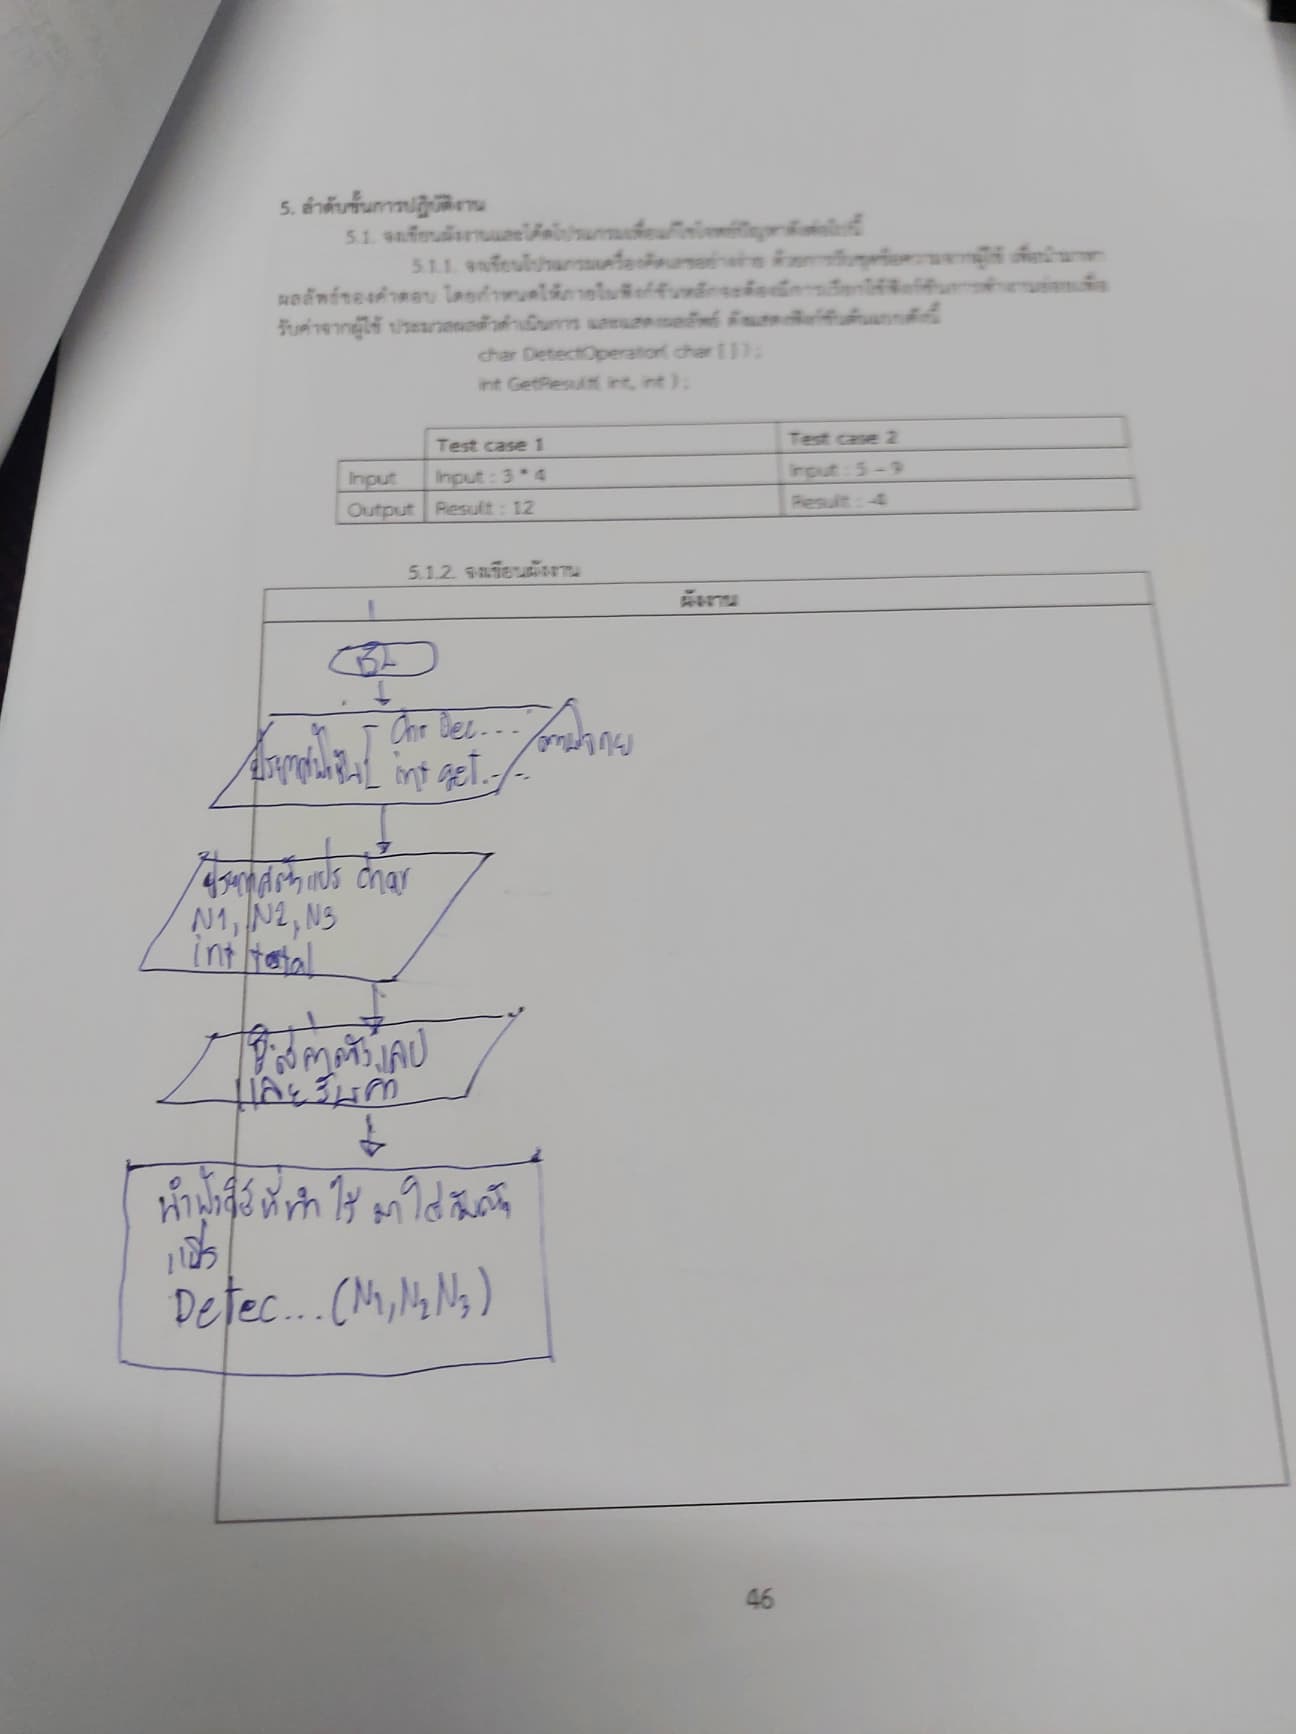 5. ลำดับขั้นการปฏิบัติงาน
5.1. จงเขียนผังงานและโค้ดโปรแกรมเพื่อแก้ไขโจทย์ปัญหาดังต่อไปนี้
5.1.1. จงเขียนโปรแกรมเครื่องคิดเลขอย่างง่าย ด้วยการรับชุดข้อความจากผู้ใช้ เพื่อนำมาหา
ผลลัพธ์ของคำตอบ โดยกำหนดให้ภายในฟังก์ชันหลักจะต้องมีการเรียกใช้ฟังก์ชันการทำงานย่อยเพื่อ
รับค่าจากผู้ใช้ ประมวลผลตัวดำเนินการ และแสดงผลลัพธ์ ดังแสดงฟังก์ชันต้นแบบดังนี้
char DetectOperator( char [ ] ) ;
int GetResult( int, int ) ;
Test case 1 Test case 2
Input Input : 3 * 4 Input : 5 – 9
Output Result : 12 Result : -4
5.1.2. จงเขียนผังงาน
ผังงาน
ประกาศฟังชัน [ Chr Dec...
int get...
ประกาศตัวแปร char
N1, N2, N3
int total
และรับค่า
แปร
Detec...(N1, N2 N3)
46